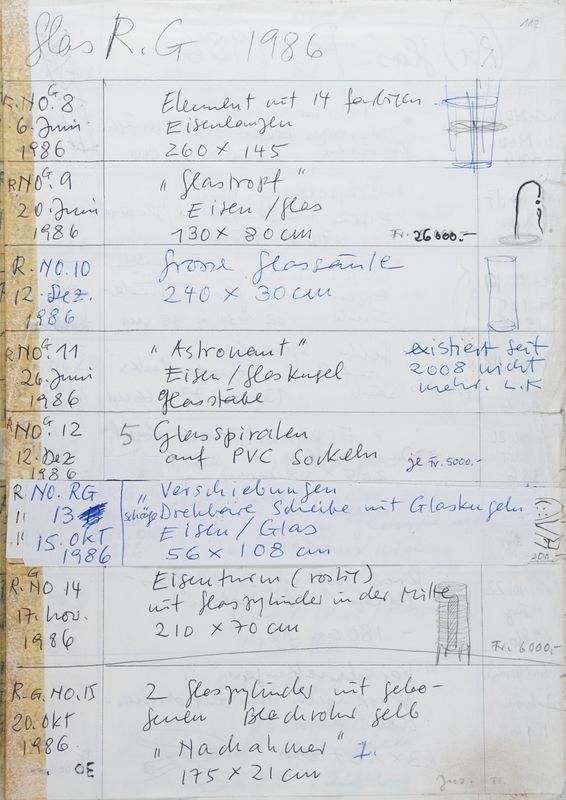 Glas R.G 1986
112
R.NO.G 8 Element mit 14 farbigen
6. Juni Eisenlanzen
1986 260 x 145
R NO.G 9 "Glastropf"
20. Juni Eisen / Glas
1986 130 x 80 cm Fr. 26000.-
R. NO. 10 Grosse Glassäule
12. Dez. 240 x 30 cm
1986
R NO.G 11 "Astronaut" existiert seit
26. Juni Eisen / Glaskugel 2008 nicht
1986 Glasstäbe mehr. L.K
R NO.G 12 5 Glasspiralen
12. Dez auf PVC Sockeln je Fr. 5000.-
1986
R. NO. RG "Verschiebungen
" 13 schräge Drehbare Scheibe mit Glaskugeln
" 15. OKT Eisen / Glas
1986 56 x 108 cm
R.G NO 14 Eisenturm (rostig)
17. Nov. mit Glaszylinder in der Mitte
1986 210 x 70 cm Fr. 6000.-
R.G. NO. 15 2 Glaszylinder mit gebo-
20. OKT genen Blechrohr gelb
1986 "Nachahmer" I.
30 175 x 21 cm